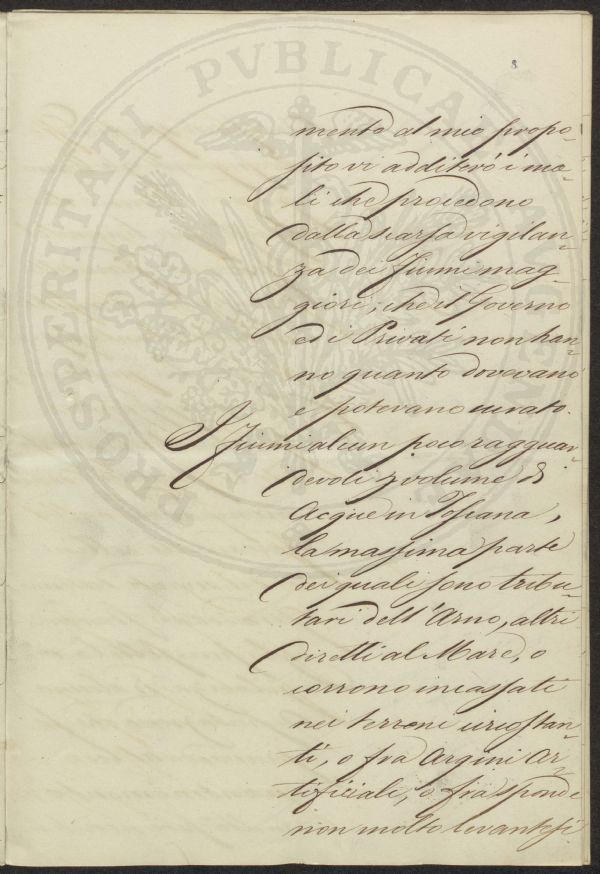 8.
PROSPERITATI PVBLICAE AVGENDAE
mento al mio propo-
sito vi additerò i ma-
li che procedono
dalla scarsa vigilan-
za dei fiumi mag-
giori, che il Governo
ed i Privati non han-
no quanto dovevano
e potevano curato.
I fiumi alcun poco ragguar-
devoli p volume di
Acque in Toscana,
la massima parte
dei quali sono tribu-
tari dell'Arno, altri
diretti al Mare, o
corrono incassati
nei terreni circostan-
ti, o fra Argini Ar-
tificiali, o fra sponde
non molto levantesi